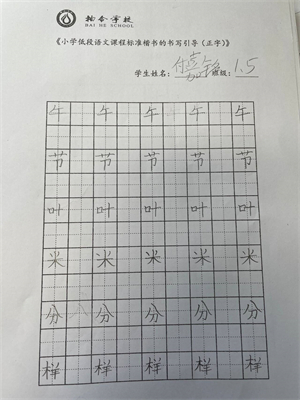 HAI HE SCHOOL
《小学低段语文课程标准楷书的书写引导（正字）》
学生姓名： 班级：1.5
午 午 午 午 午
节 节 节 节 节
叶 叶 叶 叶 叶
米 米 米 米 米
分 分 分 分 分
样 样 样 样 样